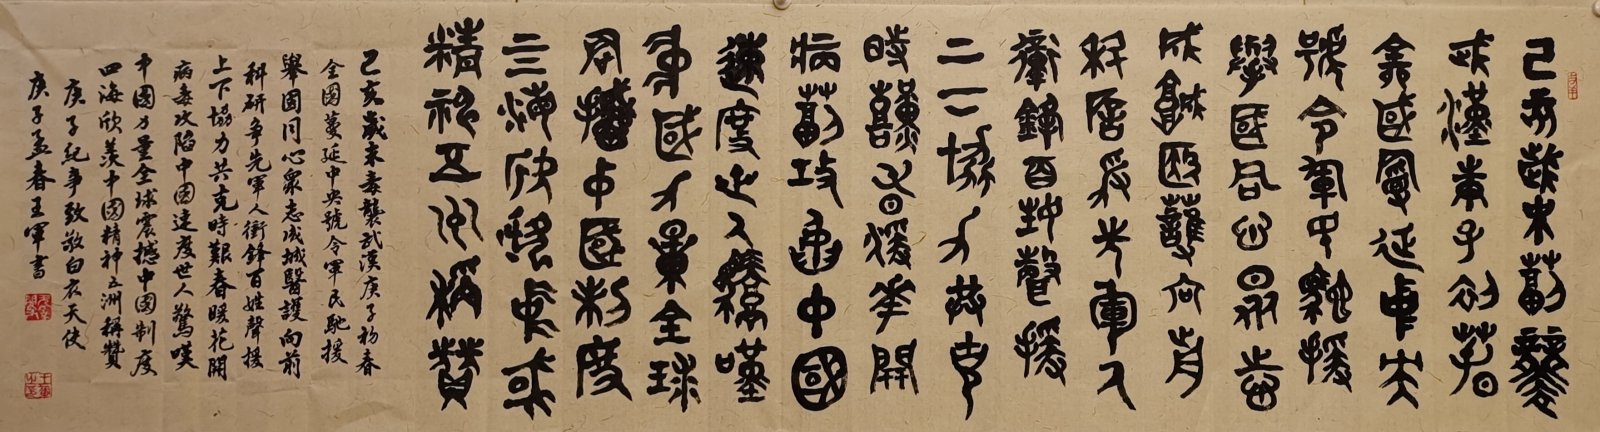 己亥歲末毒襲
武漢庚子初春
全國蔓延中央
號令軍民馳援
舉國同心眾志
成城醫護向前
科研爭先軍人
衝鋒百姓聲援
上下協力共克
時艱春暖花開
病毒攻陷中國
速度世人驚嘆
中國力量全球
震撼中國制度
四海欣羨中國
精神五洲稱贊
己亥歲末毒襲武漢庚子初春
全國蔓延中央號令軍民馳援
舉國同心眾志成城醫護向前
科研爭先軍人衝鋒百姓聲援
上下協力共克時艱春暖花開
病毒攻陷中國速度世人驚嘆
中國力量全球震撼中國制度
四海欣羨中國精神五洲稱贊
庚子紀事致敬白衣天使
庚子孟春王軍書
王軍之印